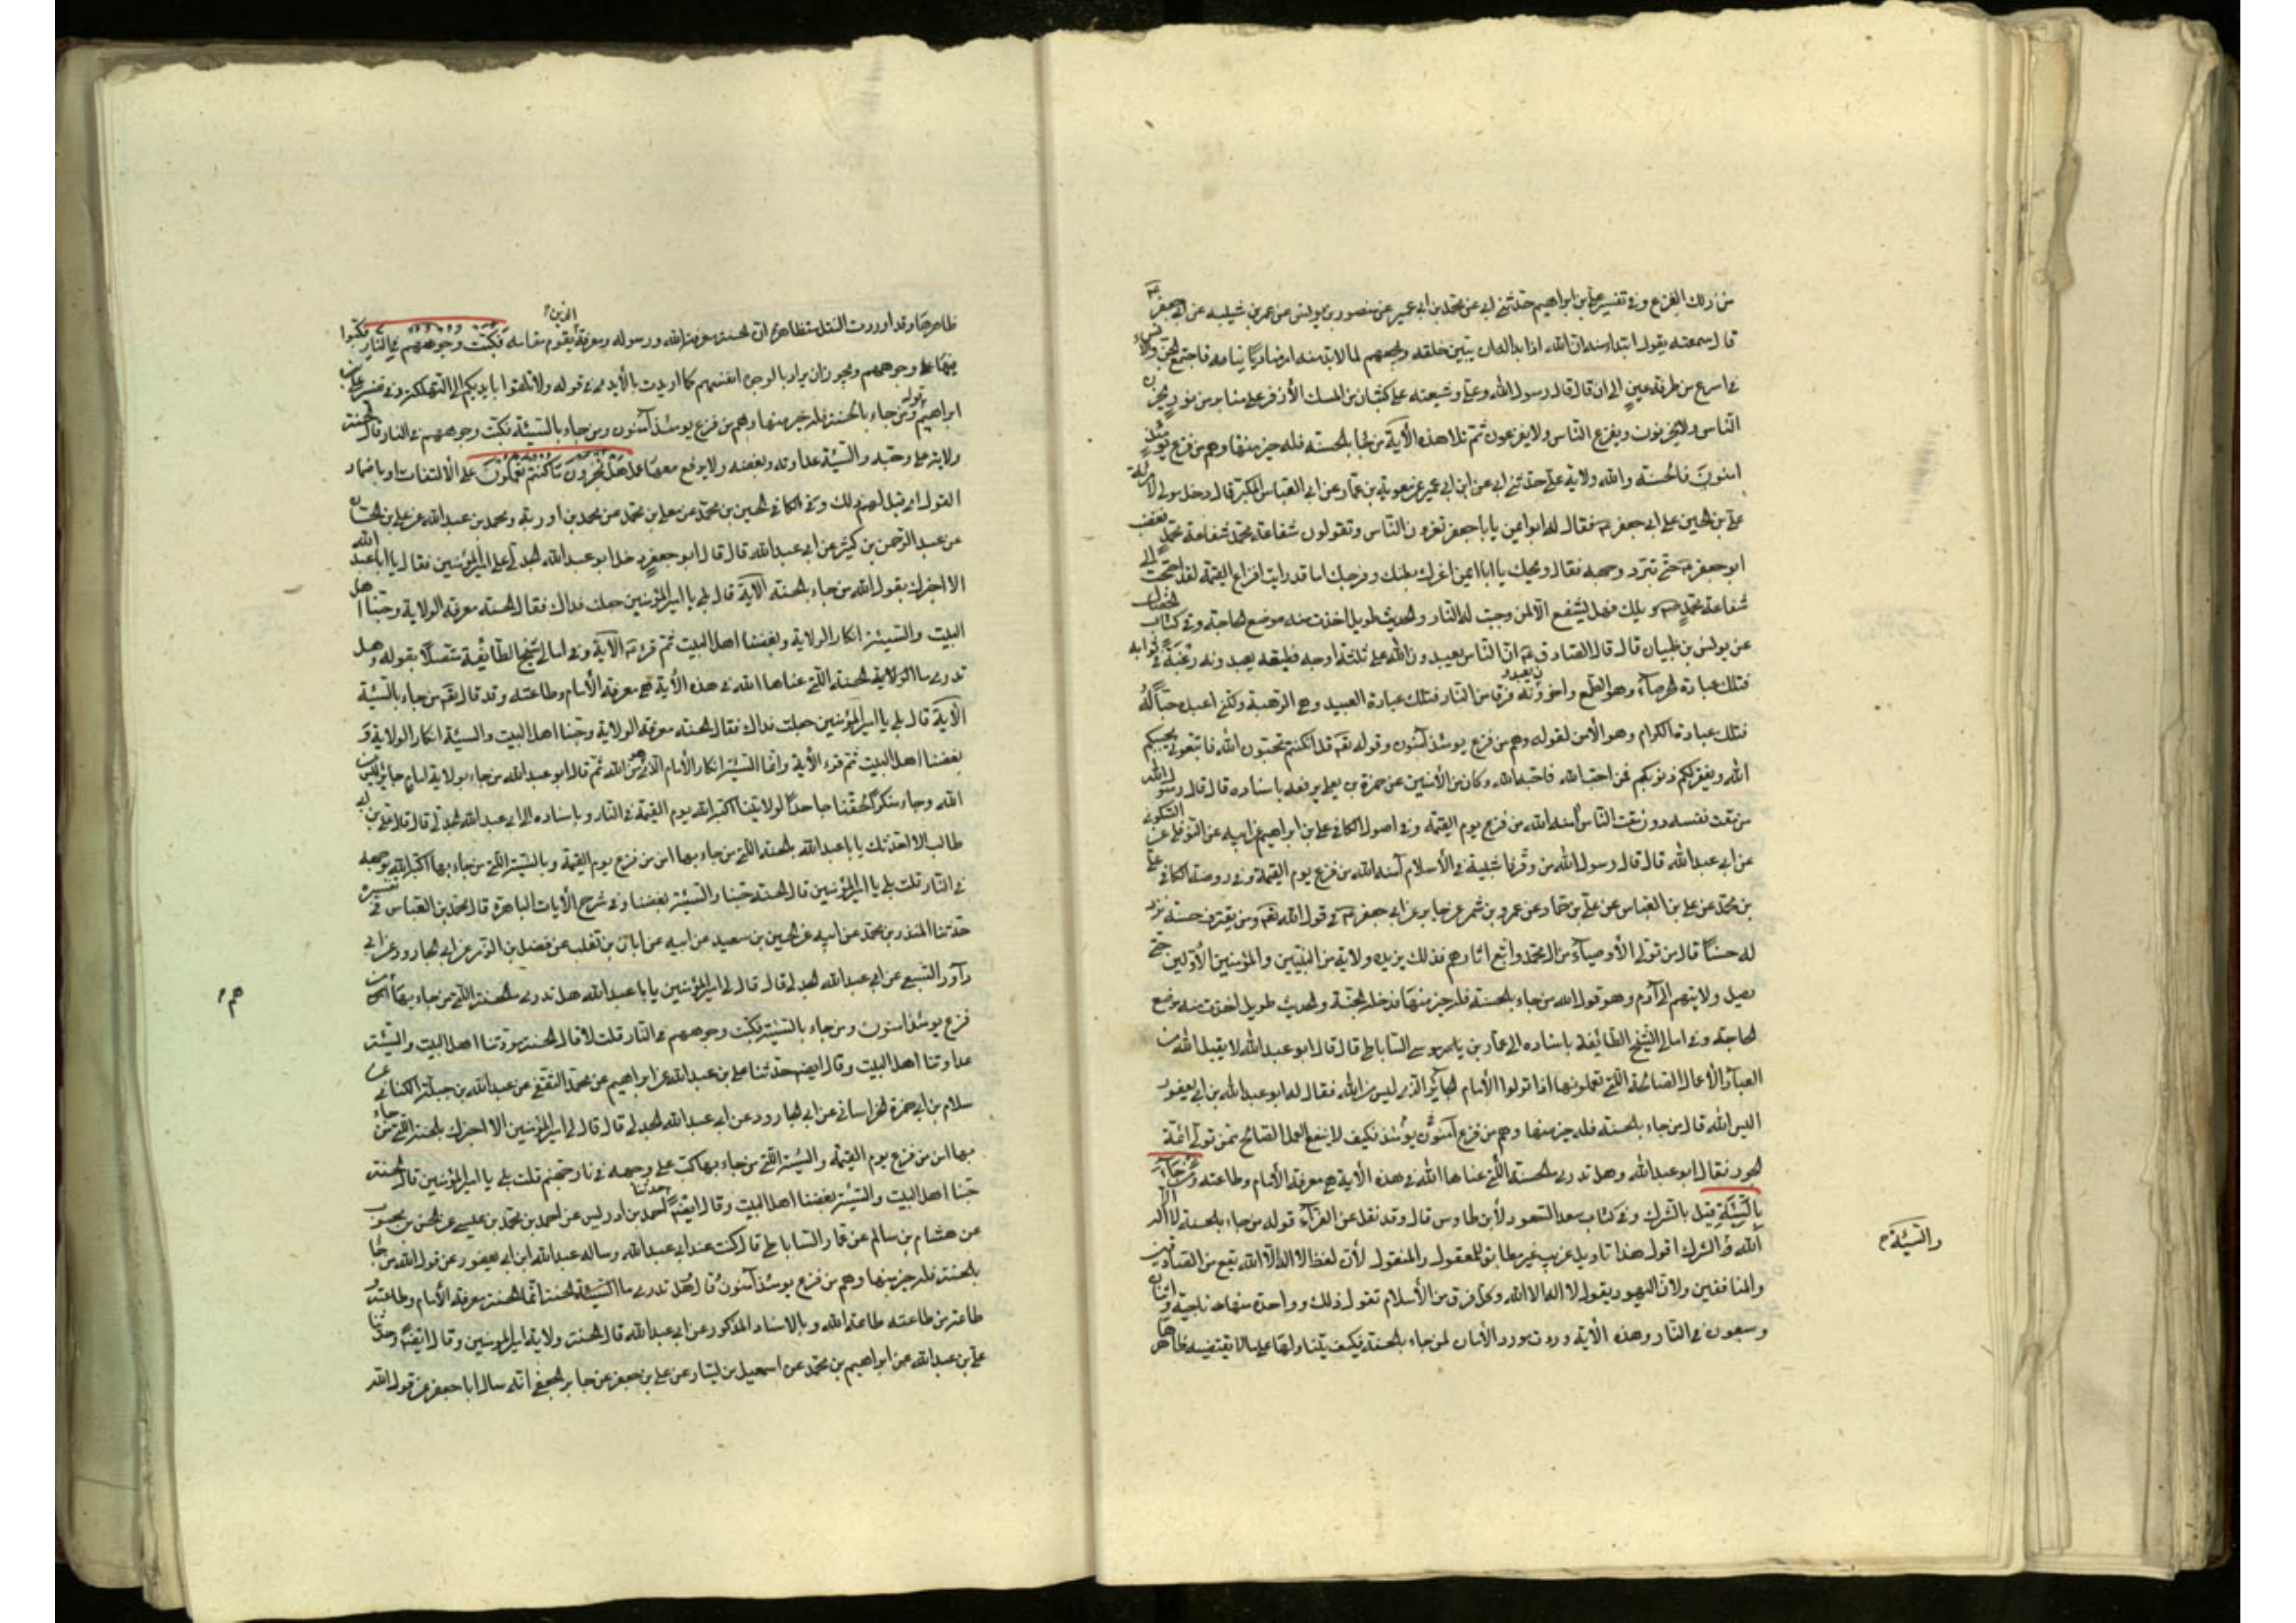 من ذلك الفزع وفي تفسير علي بن ابراهيم حدثني ابي عن محمد بن ابي عمير عن منصور بن يونس عن عمر بن شيبه عن ابي جعفر ع
قال سمعته يقول ابتداء منه ان الله اذا بدا له ان يبين خلقه ويجمعهم لما لابد منه امر مناديا ينادي فاجتمع الجن والانس
في اسرع من طرفة عين الى ان قال قال رسول الله وعلي وشيعته على كثبان من المسك الأذفر على منابر من نور يحزن
الناس ولا يحزنون ويفزع الناس ولا يفزعون ثم تلا هذه الآية من جاء بالحسنة فله خير منها وهم من فزع يومئذ
امنون فالحسنة والله ولاية علي حدثني ابي عن ابن ابي عمير عن معوية بن عمار عن ابي العباس المكبر قال دخل مولى لامرأة
علي بن الحسين على ابي جعفر ع فقال له ابو ايمن يا ابا جعفر تغرون الناس وتقولون شفاعة محمد شفاعة محمد فغضب
ابو جعفر ع حتى تربد وجهه فقال ويحك يا ابا ايمن اغرك ان عف بطنك وفرجك اما قد رايت افزاع القيمة لقد احتجت الى
شفاعة محمد ص ويلك فهل يشفع الا لمن وجبت له النار والحديث طويل اخذت منه موضع الحاجة وفي كتاب الخصال
عن يونس بن ظبيان قال قال الصادق ع ان الناس يعبدون الله على ثلثة اوجه فطبقة يعبدونه رغبة في ثوابه
فتلك عبادة الحرصاء وهو الطمع واخرون يعبدونه فرقا من النار فتلك عبادة العبيد وهي الرهبة ولكني اعبده حبا له
فتلك عبادة الكرام وهو الأمن لقوله وهم من فزع يومئذ آمنون وقوله تعم قل ان كنتم تحبون الله فاتبعوني يحببكم
الله ويغفر لكم ذنوبكم فمن احب الله فاحبه الله وكان من الأمنين عن حمزة بن يعلى يرفعه باسناده قال قال رسول الله
من مقت نفسه دون مقت الناس آمنه الله من فزع يوم القيمة وفي اصول الكافي علي بن ابراهيم عن ابيه عن النوفلي عن السكوني
عن ابي عبدالله قال قال رسول الله من وقر ذا شيبة في الأسلام آمنه الله من فزع يوم القيمة وفي روضة الكافي علي
بن محمد عن علي بن العباس عن علي بن حماد عن عمرو بن شمر عن جابر عن ابي جعفر ع في قول الله تعم ومن يقترف حسنة نزد
له حسنا قال من تولى الأوصياء من ال محمد واتبع اثارهم فذلك يزيده ولاية من النبيين والمؤمنين الأولين حتى
يصل ولايتهم الى آدم وهو قول الله من جاء بالحسنة فله خير منها فدخله الجنة والحديث طويل اخذت منه موضع
الحاجة وفي امالي الشيخ الطائفة باسناده الى عمار بن ياسر موسى الساباطي قال قال ابو عبدالله لا يقبل الله من
العباد الأعمال الصالحة اللتي تعملونها اذا تولوا الأمام الجائر الذي ليس من الله فقال له ابو عبدالله بن ابي يعفور
اليس الله قال من جاء بالحسنة فله خير منها وهم من فزع يومئذ آمنون فكيف لا ينفع العمل الصالح ممن تولى ائمة
الجور فقال ابو عبدالله وهل تدري ما الحسنة اللتي عناها الله في هذه الآية هي معرفة الأمام وطاعته ومن جاء
بالسيئة قيل بالشرك وفي كتاب سعد السعود لأبن طاوس قال وقد نقل عن الفراء قوله من جاء بالحسنة لا اله الا
الله والسيئة الشرك اقول هذا تاويل غريب غير مطابق للمعقول والمنقول لأن لفظ لا اله الا الله يقع من الصادقين
والمنافقين ولان اليهود يقول لا اله الا الله وكل فرق من الأسلام تقول ذلك وواحدة منها ناجية واثنان
وسبعون في النار وهذه الآية وردت مورد الأمان لمن جاء بالحسنة فكيف يتناولها على ما لا يقتضيه ظاهرها
والسيئة
ظاهرها وقد اوردت النقل متظاهرة ان الحسنة معرفة الله ورسوله ومعرفة الذين يقوم مقامه فكبت وجوههم في النار فكبوا
فيها على وجوههم ويجوز ان يراد بالوجوه انفسهم كما اريدت بالأيدي في قوله ولا تلقوا بايديكم الى التهلكة وفي تفسير علي بن
ابراهيم قوله ومن جاء بالحسنة فله خير منها وهم من فزع يومئذ آمنون ومن جاء بالسيئة فكبت وجوههم في النار قال الحسنة
ولاية علي وحبه والسيئة عداوته وبغضه ولا يرفع معها عمل هل تجزون ما كنتم تعملون على الالتفات او باضمار
القول اي قيل لهم ذلك وفي الكافي الحسين بن محمد عن معلى بن محمد عن محمد بن اورمة ومحمد بن عبدالله عن علي بن حسان
عن عبد الرحمن بن كثير عن ابي عبدالله قال قال ابو جعفر دخل ابو عبدالله الجدلي على امير المؤمنين فقال يا ابا عبد الله
الا اخبرك بقول الله من جاء بالحسنة الآية قال بلى يا امير المؤمنين جعلت فداك فقال الحسنة معرفة الولاية وحبنا اهل
البيت والسيئة انكار الولاية وبغضنا اهل البيت ثم قرء ع الآية وفي امالي شيخ الطائفة متصلا بقوله وهل
تدري ما الولاية الحسنة اللتي عناها الله في هذه الأية هي معرفة الأمام وطاعته وقد قال تعم من جاء بالسيئة
الآية قال بلى يا امير المؤمنين جعلت فداك فقال الحسنة معرفة الولاية وحبنا اهل البيت والسيئة انكار الولاية و
بغضنا اهل البيت ثم قرء الأية وانما السيئة انكار الأمام الذي هو من الله ثم قال ابو عبدالله من جاء بولاية امام جائر ليس من
الله وجاء منكرا لحقنا جاحدا لولايتنا اكبه الله يوم القيمة في النار وباسناده الى ابي عبدالله الجدلي قال قال علي بن ابي
طالب الا احدثك يا ابا عبدالله بالحسنة اللتي من جاء بها امن من فزع يوم القيمة وبالسيئة اللتي من جاء بها اكبه الله بوجهه
في النار قلت بلى يا امير المؤمنين قال الحسنة حبنا والسيئة بغضنا وفي شرح الأيات الباهرة قال محمد بن العباس في تفسيره
حدثنا المنذر بن محمد عن ابيه عن الحسين بن سعيد عن ابيه عن ابان بن تغلب عن فضل بن الزبير عن ابي الجارود عن ابي
داود السبيع عن ابي عبدالله الجدلي قال قال لي امير المؤمنين يا با عبدالله هل تدري ما الحسنة اللتي من جاء بها هم من
فزع يومئذ امنون ومن جاء بالسيئة فكبت وجوههم في النار قلت لا قال الحسنة مودتنا اهل البيت والسيئة
عداوتنا اهل البيت وقال ايضا حدثنا علي بن عبدالله عن ابراهيم عن محمد الثقفي عن عبدالله بن جبلة الكناني عن
سلام بن ابي حمزة الخراساني عن ابي الجارود عن ابي عبدالله الجدلي قال قال لي امير المؤمنين الا اخبرك بالحسنة اللتي من جاء
بها امن من فزع يوم القيمة والسيئة اللتي من جاء بها كب على وجهه في نار جهنم قلت بلى يا امير المؤمنين قال الحسنة
حبنا اهل البيت والسيئة بغضنا اهل البيت وقال ايضا حدثنا احمد بن ادريس عن احمد بن محمد بن عيسى عن الحسن بن محبوب
عن هشام بن سالم عن عمار الساباطي قال كنت عند ابي عبدالله وساله عبدالله ابن ابي يعفور عن قول الله من جاء
بالحسنة فله خير منها وهم من فزع يومئذ آمنون قال هل تدري ما الحسنة انما الحسنة معرفة الأمام وطاعته و
طاعته من طاعة الله وبالاسناد المذكور عن ابي عبدالله قال الحسنة ولاية امير المؤمنين وقال ايضا وحدثنا
علي بن عبدالله عن ابراهيم بن محمد عن اسمعيل بن بشار عن علي بن جعفر عن جابر الجعفي انه سال ابا جعفر عن قول الله
هم